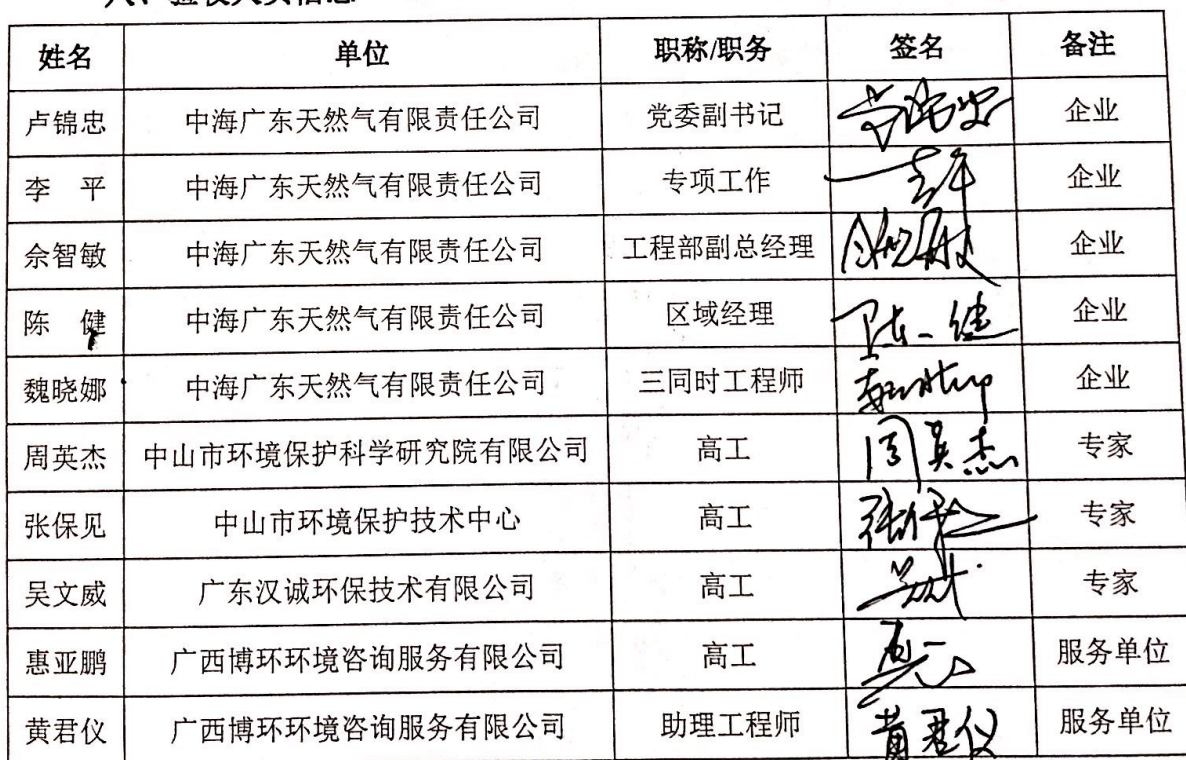 八、验收人员信息
姓名 单位 职称/职务 签名 备注
卢锦忠 中海广东天然气有限责任公司 党委副书记 企业
李 平 中海广东天然气有限责任公司 专项工作 企业
佘智敏 中海广东天然气有限责任公司 工程部副总经理 企业
陈 健 中海广东天然气有限责任公司 区域经理 陈健 企业
魏晓娜 中海广东天然气有限责任公司 三同时工程师 企业
周英杰 中山市环境保护科学研究院有限公司 高工 周英杰 专家
张保见 中山市环境保护技术中心 高工 专家
吴文威 广东汉诚环保技术有限公司 高工 专家
惠亚鹏 广西博环环境咨询服务有限公司 高工 服务单位
黄君仪 广西博环环境咨询服务有限公司 助理工程师 黄君仪 服务单位